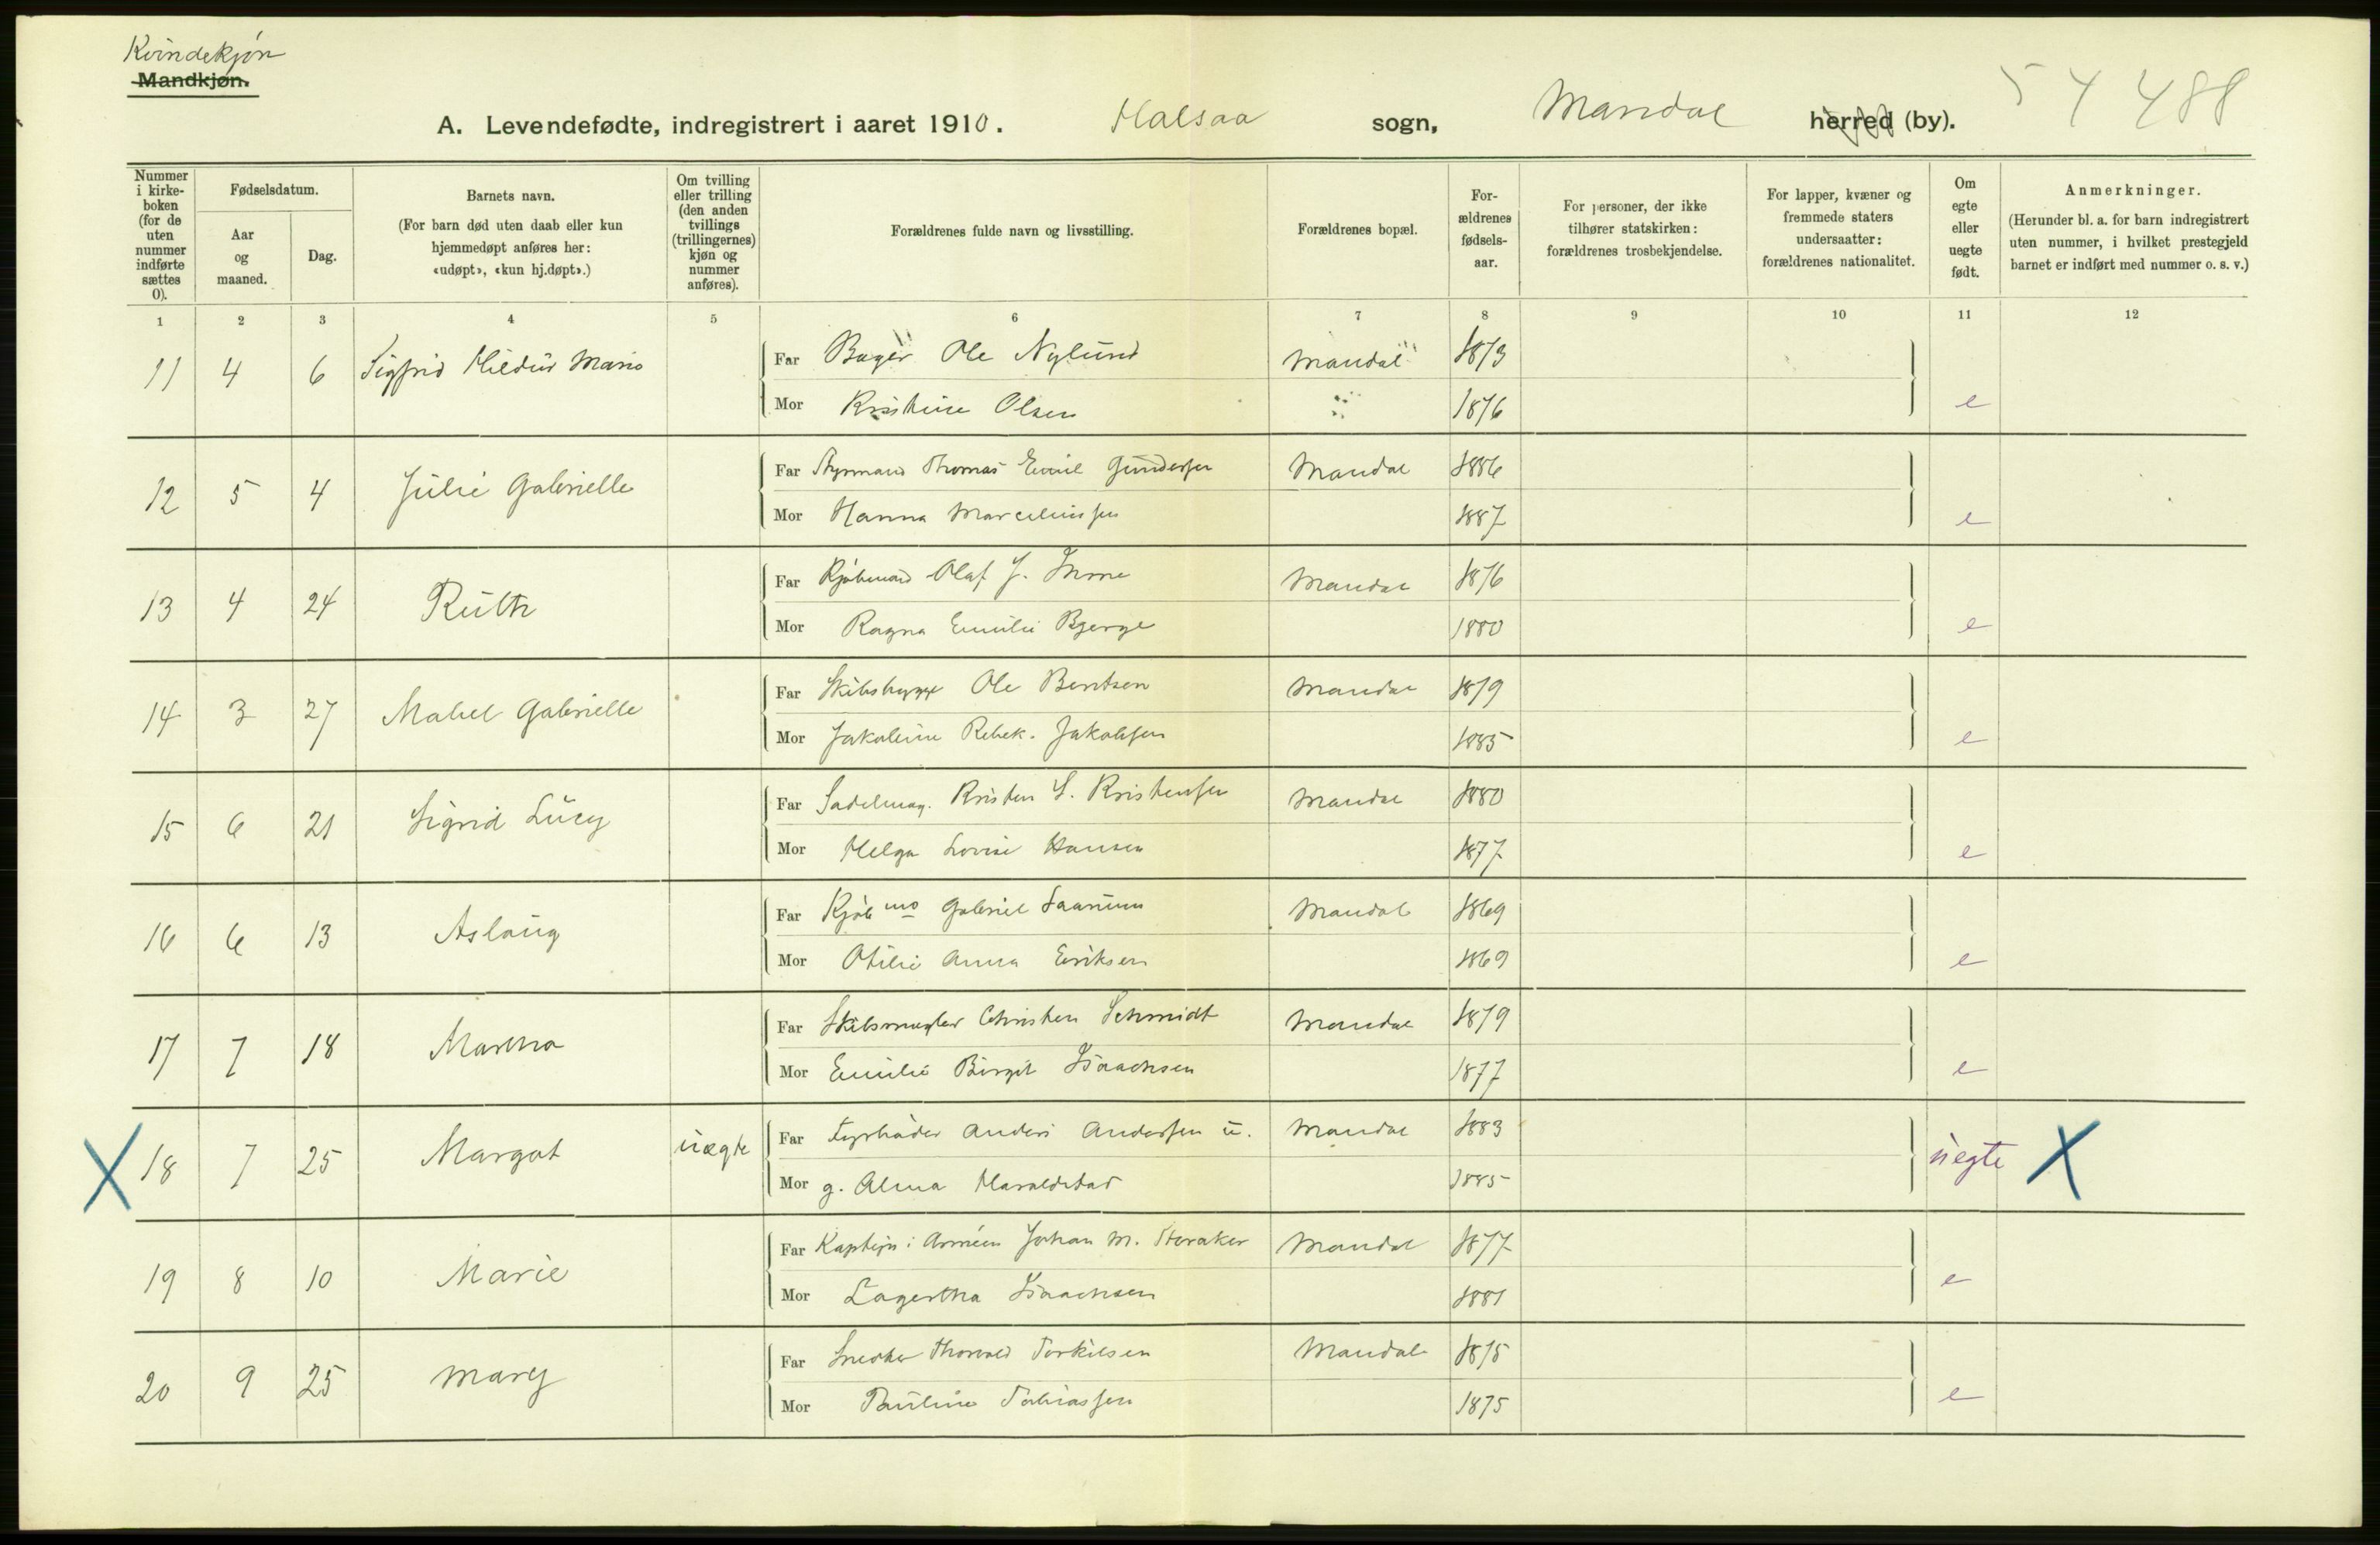 Kvindekjøn
Mandkjøn.
A. Levendefødte, indregistrert i aaret 1910. Halsaa sogn, Mandal herred (by). 5 4 488
Nummer i kirkeboken (for de uten nummer indførte sættes 0).
Fødselsdatum.
Aar og maaned.
Dag.
Barnets navn.
(For barn død uten daab eller kun hjemmedøpt anføres her: «udøpt», «kun hj.døpt».)
Om tvilling eller trilling (den anden tvillings (trillingernes) kjøn og nummer anføres).
Forældrenes fulde navn og livsstilling.
Forældrenes bopæl.
Forældrenes fødselsaar.
For personer, der ikke tilhører statskirken: forældrenes trosbekjendelse.
For lapper, kvæner og fremmede staters undersaatter: forældrenes nationalitet.
Om egte eller uegte født.
Anmerkninger.
(Herunder bl. a. for barn indregistrert uten nummer, i hvilket prestegjeld barnet er indført med nummer o. s. v.)
1 2 3 4 5 6 7 8 9 10 11 12
11 4 6 Sigfrid Hildur Marie Far Bager Ole Nylund Mandal 1873
Mor Kristine Olsen " 1876 e
12 5 4 Julie Gabrielle Far Styrmand Thomas Emil Gundersen Mandal 1886
Mor Hanna Marceliussen 1887 e
13 4 24 Ruth Far Kjøbmand Olaf J. Mandal 1876
Mor Ragna Emilie Bjerge 1880 e
14 3 27 Mabel Gabrielle Far Skibsbygg Ole Bentsen Mandal 1879
Mor Jakobine Rebek. Jakobsen 1885 e
15 6 21 Sigrid Lucy Far Sadelmag. Kristen S. Kristensen Mandal 1880
Mor Helga Lovise Hansen 1877 e
16 6 13 Aslaug Far Kjøbmd Gabriel Saanum Mandal 1869
Mor Otilie Anna Eriksen 1869 e
17 7 18 Martha Far Skibsmægler Christen Schmidt Mandal 1879
Mor Emilie Birgit Isaachsen 1877 e
X 18 7 25 Margot uægte Far Fyrbøder Anders Andersen u. Mandal 1883
Mor g. Alma Haraldstad 1885 uegte X
19 8 10 Marie Far Kaptejn i Armeen Johan M. Storaker Mandal 1877
Mor Lagertha Isaachsen 1881 e
20 9 25 Mary Far Snedker Thorvald Torkilsen Mandal 1875
Mor Pauline Tobiassen 1875 e